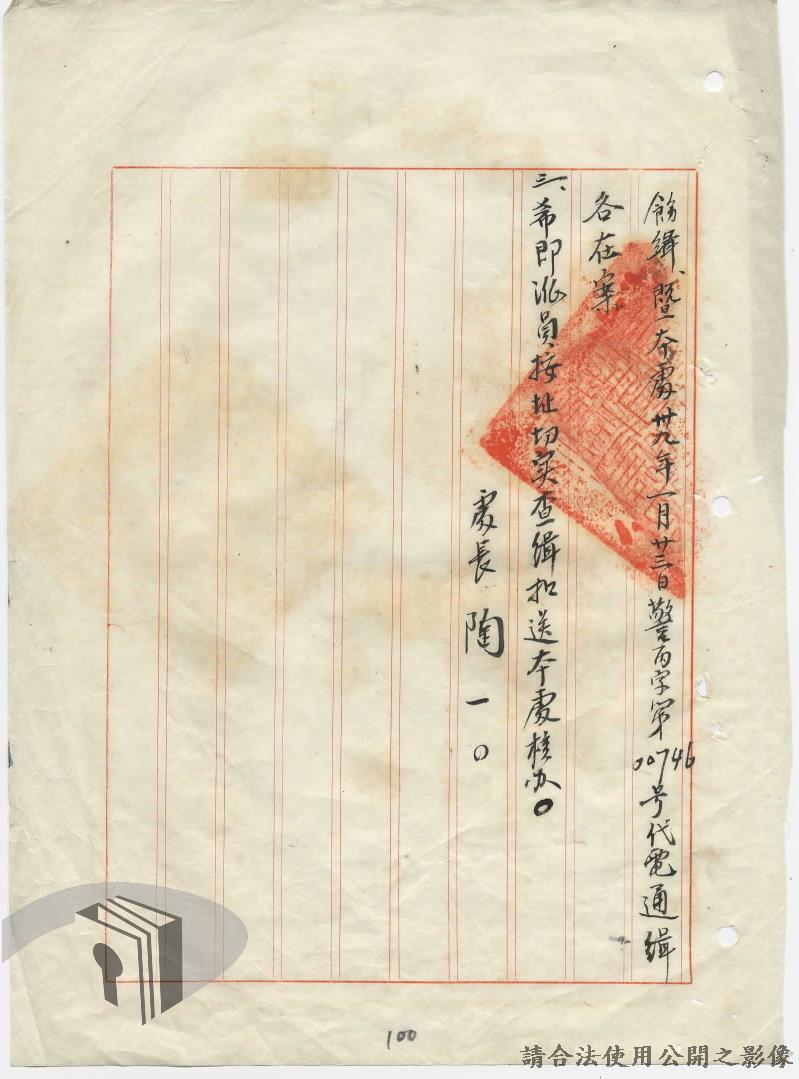 飭緝、暨本處卅九年一月廿三日警丙字第00746号代電通緝
各在案
三、希即派員按址切实查緝扣送本處核办。
處長 陶一〇
100
請合法使用公開之影像